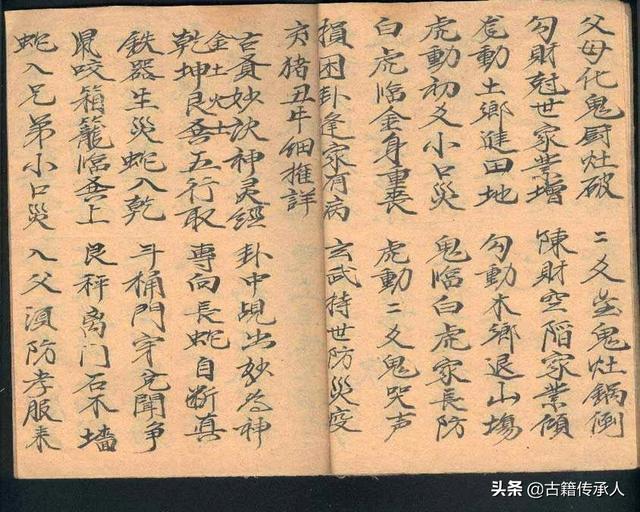 父母化鬼厨灶破 二爻鬼灶鍋倒
勾財尅世家業增 陳財空陷家業傾
動土鄉進田地 勾動木鄉退山塲
虎動初爻小口災 鬼臨白虎家長防
白虎臨金身重喪 虎動二爻鬼哭声
損困卦逢家有病 玄武持世防災疫
亥猪丑牛细推詳
古妙訣神灵經 卦中出妙為神
金土火土
乾坤艮巽五行取 專向長蛇自斷真
铁器生災蛇入乾 斗桶門穿克聞争
鼠咬箱籠臨巽上 艮秤离门石不墻
蛇入兄弟小口災 入父須防孝服来
头条 @古籍传承人